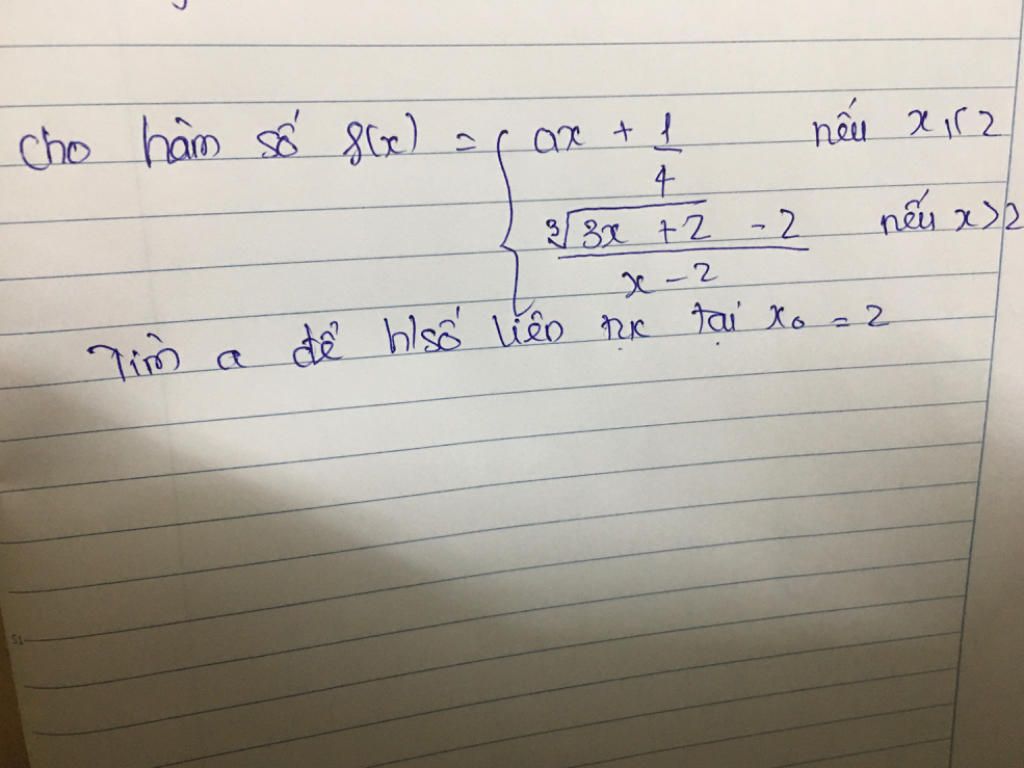 Cho hàm số f(x) = { ax + 1/4 nếu x ≤ 2
∛(3x + 2) - 2 / x - 2 nếu x > 2
Tìm a để h/số liên tục tại x₀ = 2
51